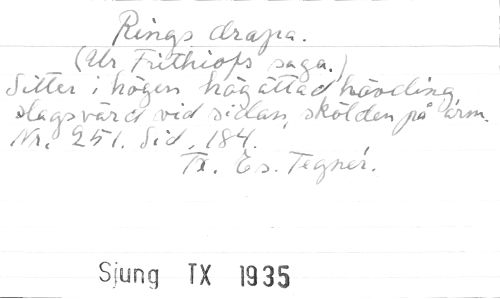 Rings drapa.
(Ur Frithiofs saga.)
Sitter i högen högättad hövding,
slagsvärd vid sidan, skölden på arm.
Nr. 251. Sid. 184.
Tx. Es. Tegnér.
Sjung TX 1935